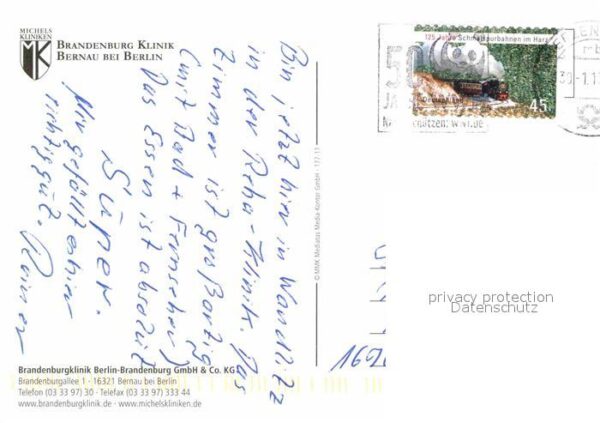 MICHELS
KLINIKEN
BRANDENBURG KLINIK
BERNAU BEI BERLIN
Bin jetzt hier in Wandlitz
in der Reha-Klinik. Das
Zimmer ist großartig
(mit Bad + Fernseher)
Das Essen ist absolut
Super.
Mir gefällt es hier
richtig gut. Rainer
© MMK Mediatus Media-Kontor GmbH · 177-11
125 Jahre Schmalspurbahnen im Harz
Deutschland
45
privacy protection
Datenschutz
Brandenburgklinik Berlin-Brandenburg GmbH & Co. KG
Brandenburgallee 1 · 16321 Bernau bei Berlin
Telefon (03 33 97) 30 · Telefax (03 33 97) 333 44
www.brandenburgklinik.de · www.michelskliniken.de